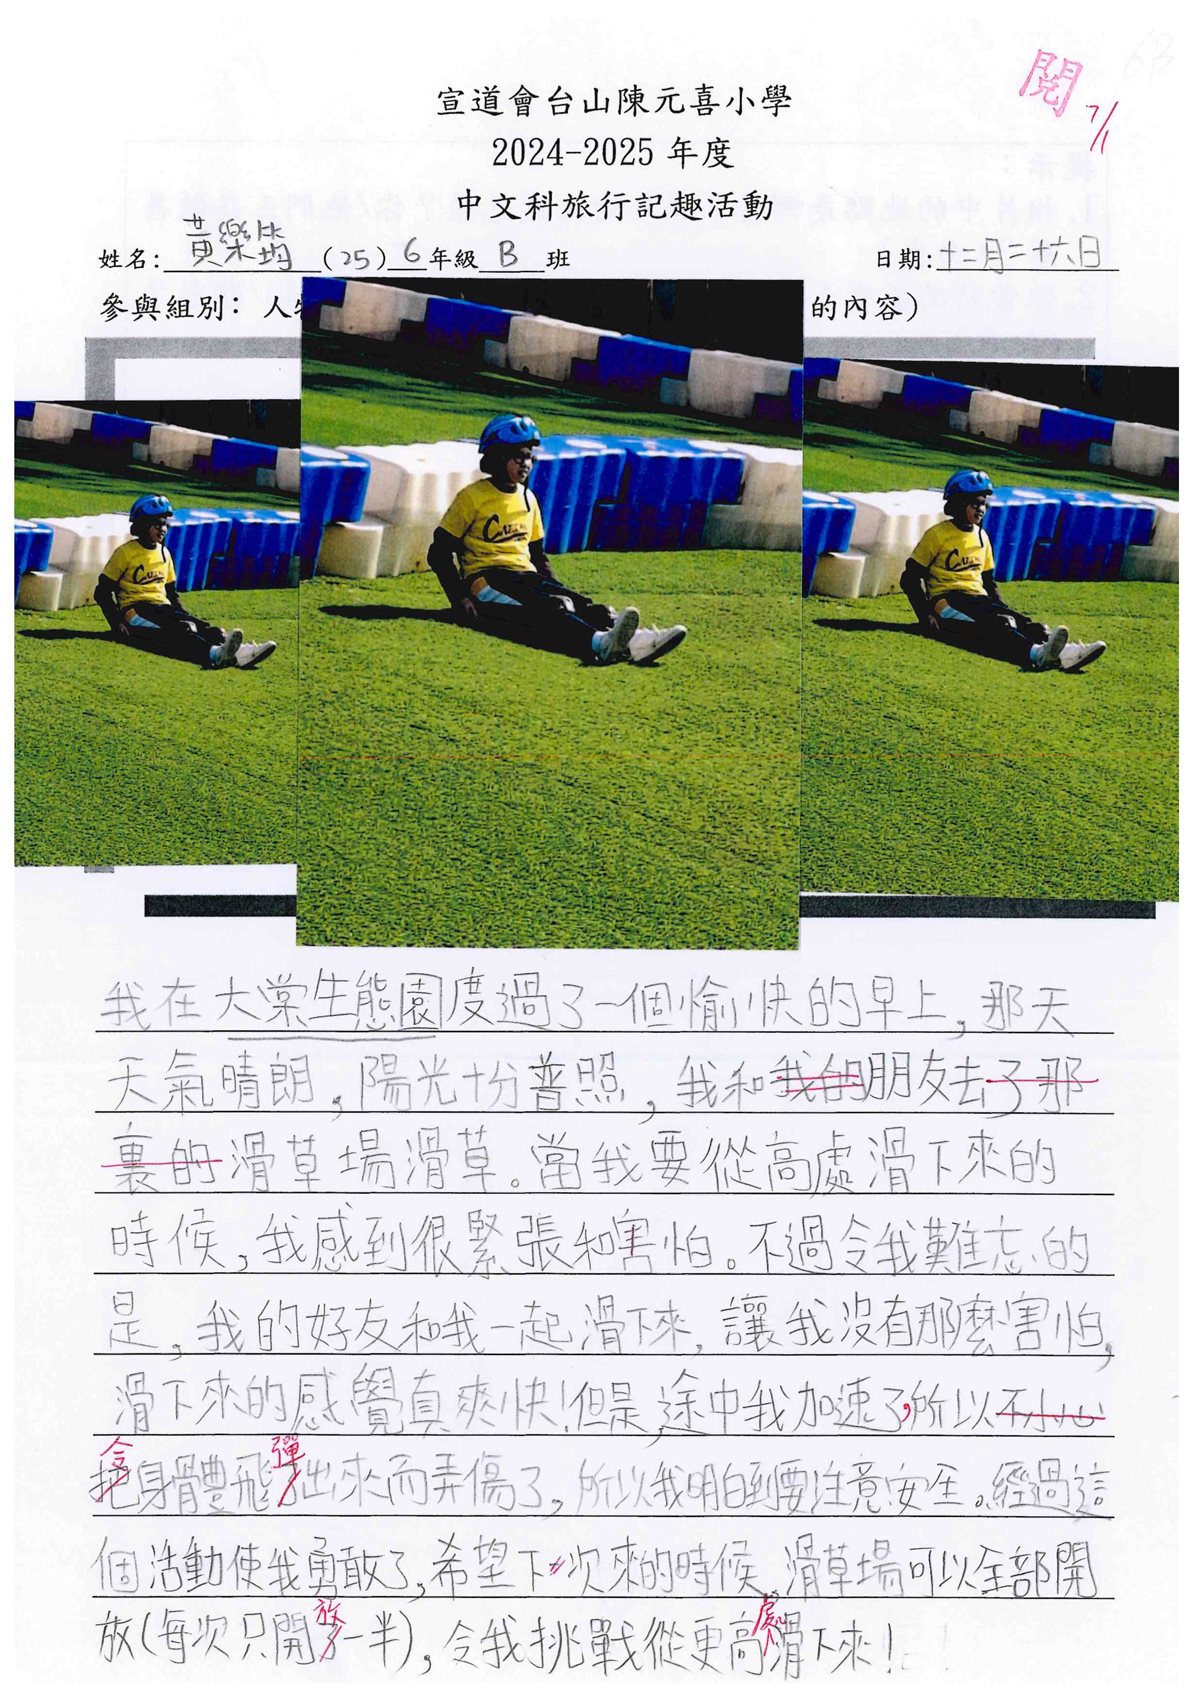 閱 7/1
6B
宣道會台山陳元喜小學
2024-2025 年度
中文科旅行記趣活動
姓名:黃樂筠(25) 6年級 B 班 日期:十二月二十六日
參與組別:人物 的內容)
我在大棠生態園度過了一個愉快的早上,那天
天氣晴朗,陽光十分普照,我和我的朋友去了那
裏的滑草場滑草。當我要從高處滑下來的
時候,我感到很緊張和害怕。不過令我難忘的
是,我的好友和我一起滑下來,讓我沒有那麼害怕,
滑下來的感覺真爽快!但是,途中我加速了,所以不小心
令 彈
把身體飛了出來而弄傷了,所以我明白到要注意安全。經過這
個活動使我勇敢了,希望下次來的時候,滑草場可以全部開
放 處
放(每次只開了一半),令我挑戰從更高滑下來!